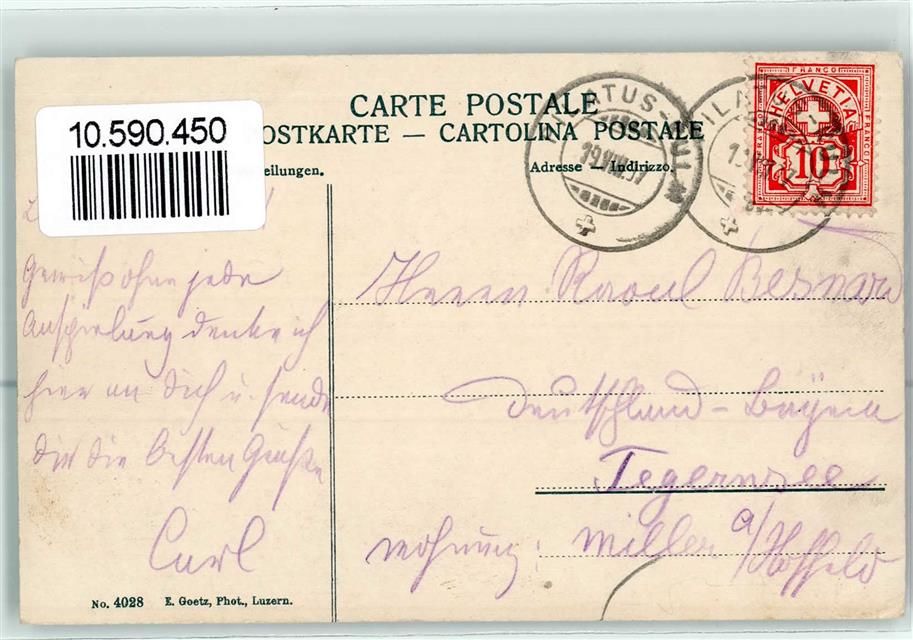 CARTE POSTALE
POSTKARTE — CARTOLINA POSTALE
10.590.450
Adresse — Indirizzo.
FRANCO
HELVETIA
10
PILATUS-KULM
19.VII.07
Gewiß ohne jede
Anspielung denke ich
hier an Dich u. sende
Dir die besten Grüße
Carl
Herrn Raoul Bernard
Deutschland - Bayern
Tegernsee
Wohnung: Miller a/Hoffeld
No. 4028 E. Goetz, Phot., Luzern.